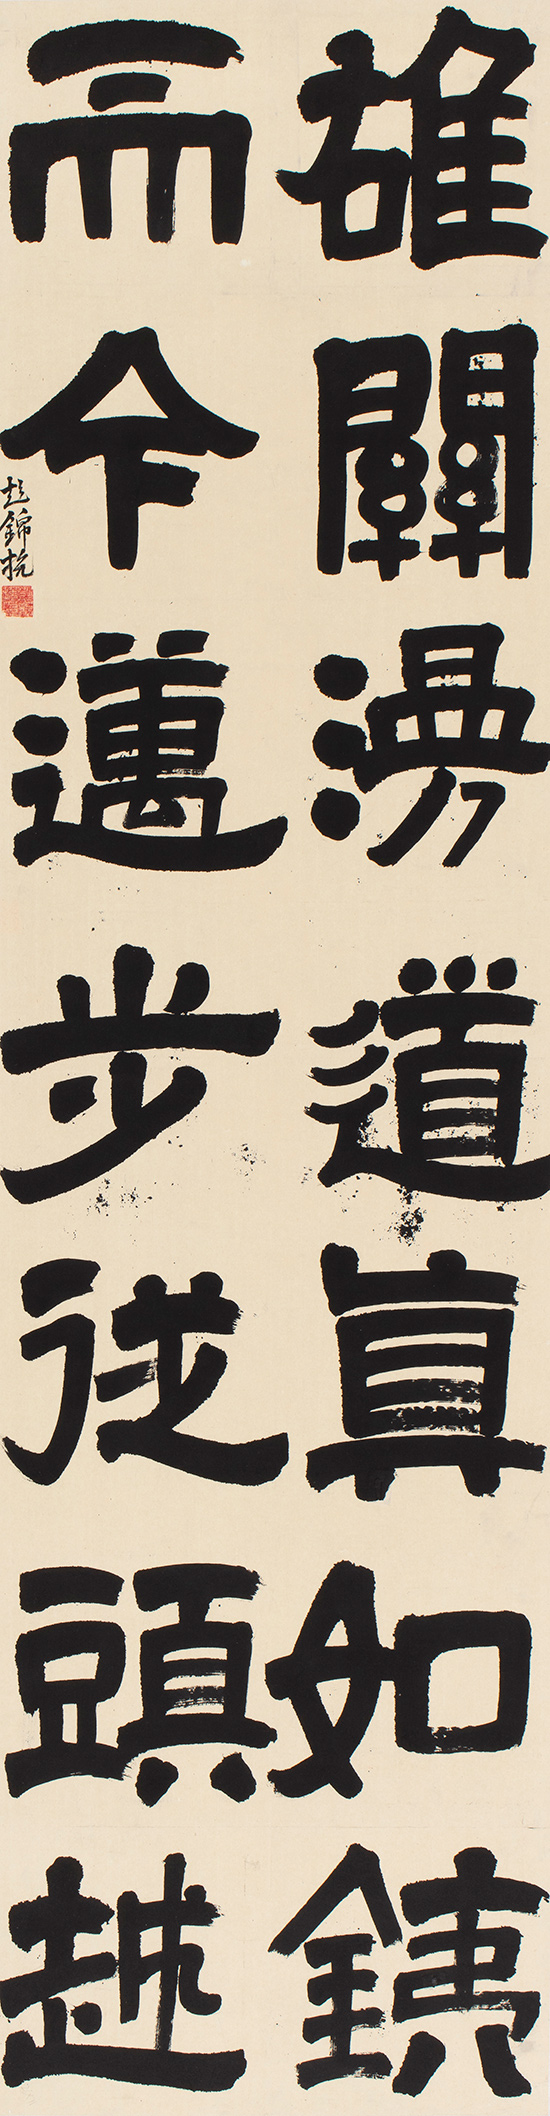 雄關漫道真如鐵
而今邁步從頭越
彭錦抗